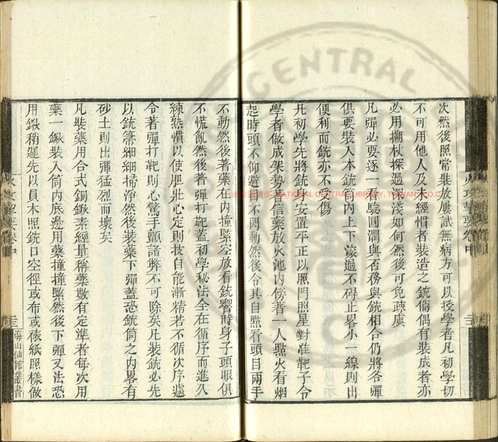 次然後照常裝放屢試無病方可授學者凡初學切
不可用他人及未經慣者裝造之銃偶有裝成者亦
必用搠杖探過深淺如何然後可免疎虞
凡彈必要逐一看驗圓滿與否務與銃相合仍將各彈
俱要裝入本銃口內上下滾過不碍止畧小一線則出
便利而銃亦不受傷
凡初學先將銃身安置平正以照門照星對準靶子令
學者做成架勢若信藥放火池內傍者二人縣火有烟
起時頭不仰避目不閃開然後令其自照行頭目兩手
不動然後著藥在內撞緊空放看銃響時身子頭眼俱
不慌亂然後著彈打靶蓋初學秘法全在循序而進久
練熟慣以使肥壯心定則技自能漸精若不循次序遽
令著彈打靶則心驚手顫諸弊不可除矣凡裝銃必先
以銃籌細細掃淨然後裝藥下彈蓋恐銃筒之內畧有
砂土則出彈猛烈而壞矣
凡裝藥用合式鐲鍬菜經量稱藥數有定準者每次用
藥一鍬裝入筒內底邊用藥撞撞緊然後下彈又法恐
用鍬稍遲先以員木照銃口空徑或布或依紙照樣做